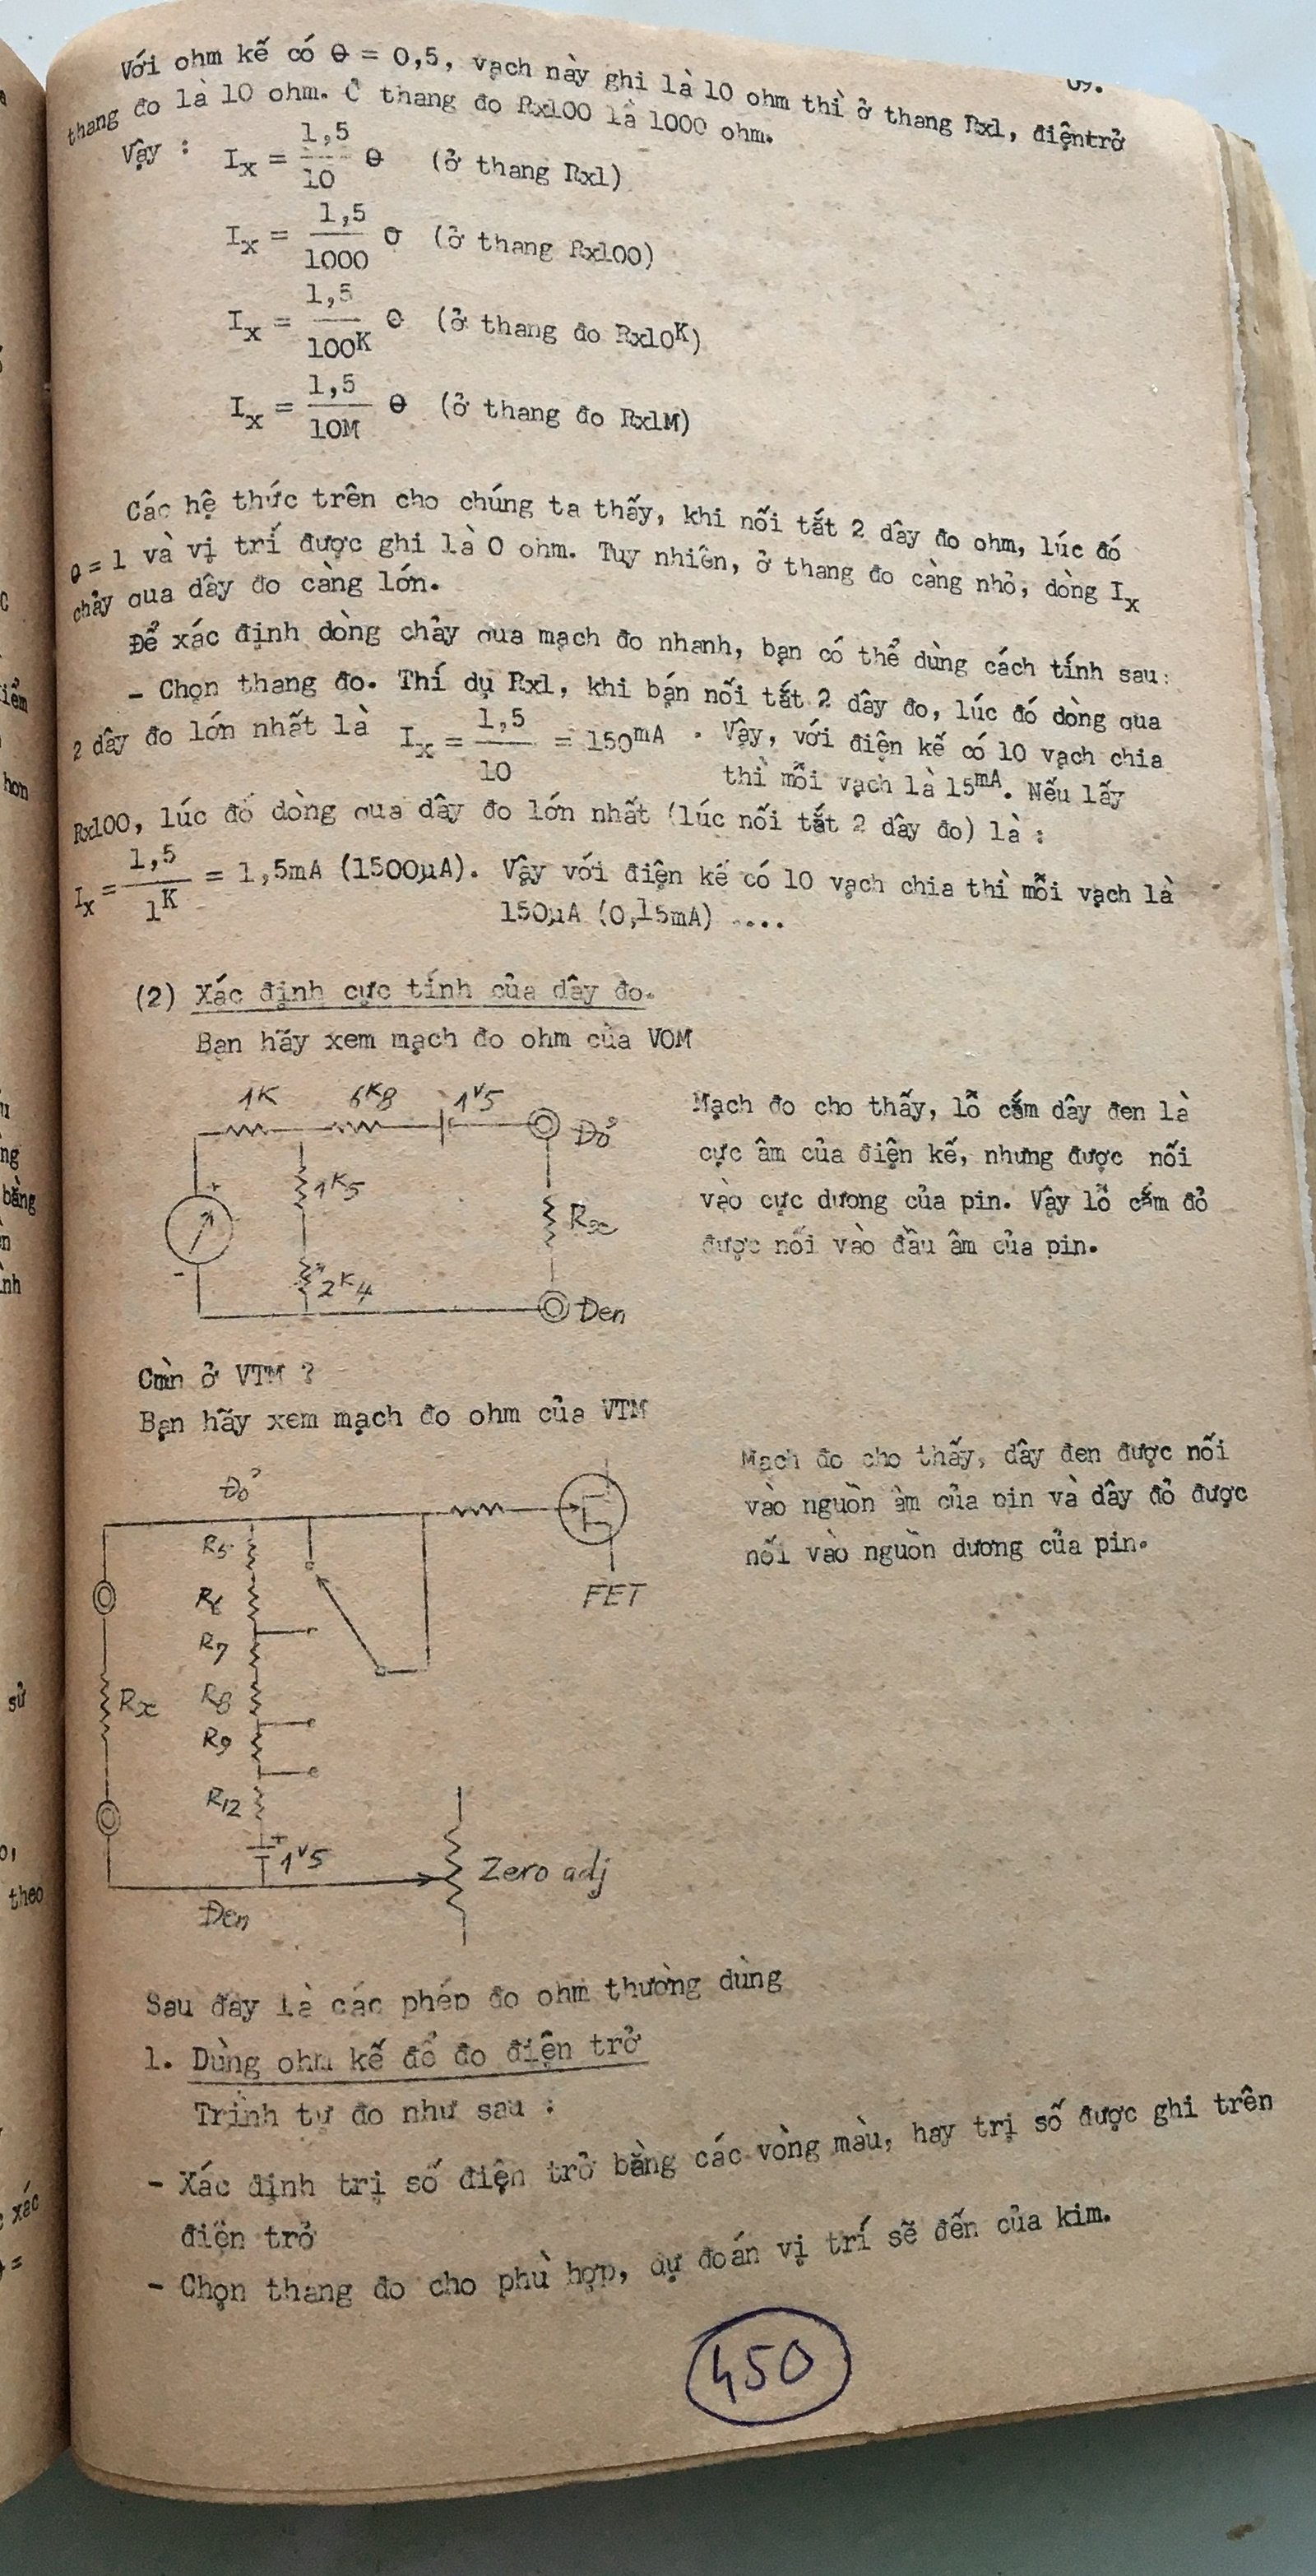 09.
Với ohm kế có θ = 0,5, vạch này ghi là 10 ohm thì ở thang Rx1, điệntrở
thang đo là 10 ohm. Ở thang đo Rx100 là 1000 ohm.
Vậy : Ix = 1,5/10 θ (ở thang Rx1)
Ix = 1,5/1000 θ (ở thang Rx100)
Ix = 1,5/100K θ (ở thang đo Rx10K)
Ix = 1,5/10M θ (ở thang đo Rx1M)
Các hệ thức trên cho chúng ta thấy, khi nối tắt 2 dây đo ohm, lúc đó
θ = 1 và vị trí được ghi là 0 ohm. Tuy nhiên, ở thang đo càng nhỏ, dòng Ix
chảy qua dây đo càng lớn.
Để xác định dòng chảy qua mạch đo nhanh, bạn có thể dùng cách tính sau:
- Chọn thang đo. Thí dụ Rx1, khi bạn nối tắt 2 dây đo, lúc đó dòng qua
2 dây đo lớn nhất là Ix = 1,5/10 = 150mA . Vậy, với điện kế có 10 vạch chia
thì mỗi vạch là 15mA. Nếu lấy
Rx100, lúc đó dòng qua dây đo lớn nhất (lúc nối tắt 2 dây đo) là :
Ix = 1,5/1K = 1,5mA (1500µA). Vậy với điện kế có 10 vạch chia thì mỗi vạch là
150µA (0,15mA) ....
(2) Xác định cực tính của dây đo.
Bạn hãy xem mạch đo ohm của VOM
1K 6K8 1V5
Đỏ
+
1K5
Rx
-
2K4
Đen
Mạch đo cho thấy, lỗ cắm dây đen là
cực âm của điện kế, nhưng được nối
vào cực dương của pin. Vậy lỗ cắm đỏ
được nối vào đầu âm của pin.
ở VTM ?
Bạn hãy xem mạch đo ohm của VTM
Đỏ
R5
R6
R7
R8
R9
R12
Rx
FET
+
1V5
Zero adj
Đen
Mạch đo cho thấy, dây đen được nối
vào nguồn âm của pin và dây đỏ được
nối vào nguồn dương của pin.
Sau đây là các phép đo ohm thường dùng
1. Dùng ohm kế để đo điện trở
Trình tự đo như sau :
- Xác định trị số điện trở bằng các vòng màu, hay trị số được ghi trên
điện trở
- Chọn thang đo cho phù hợp, dự đoán vị trí sẽ đến của kim.
450
iểm
hơn
bằng
sử
theo
xác